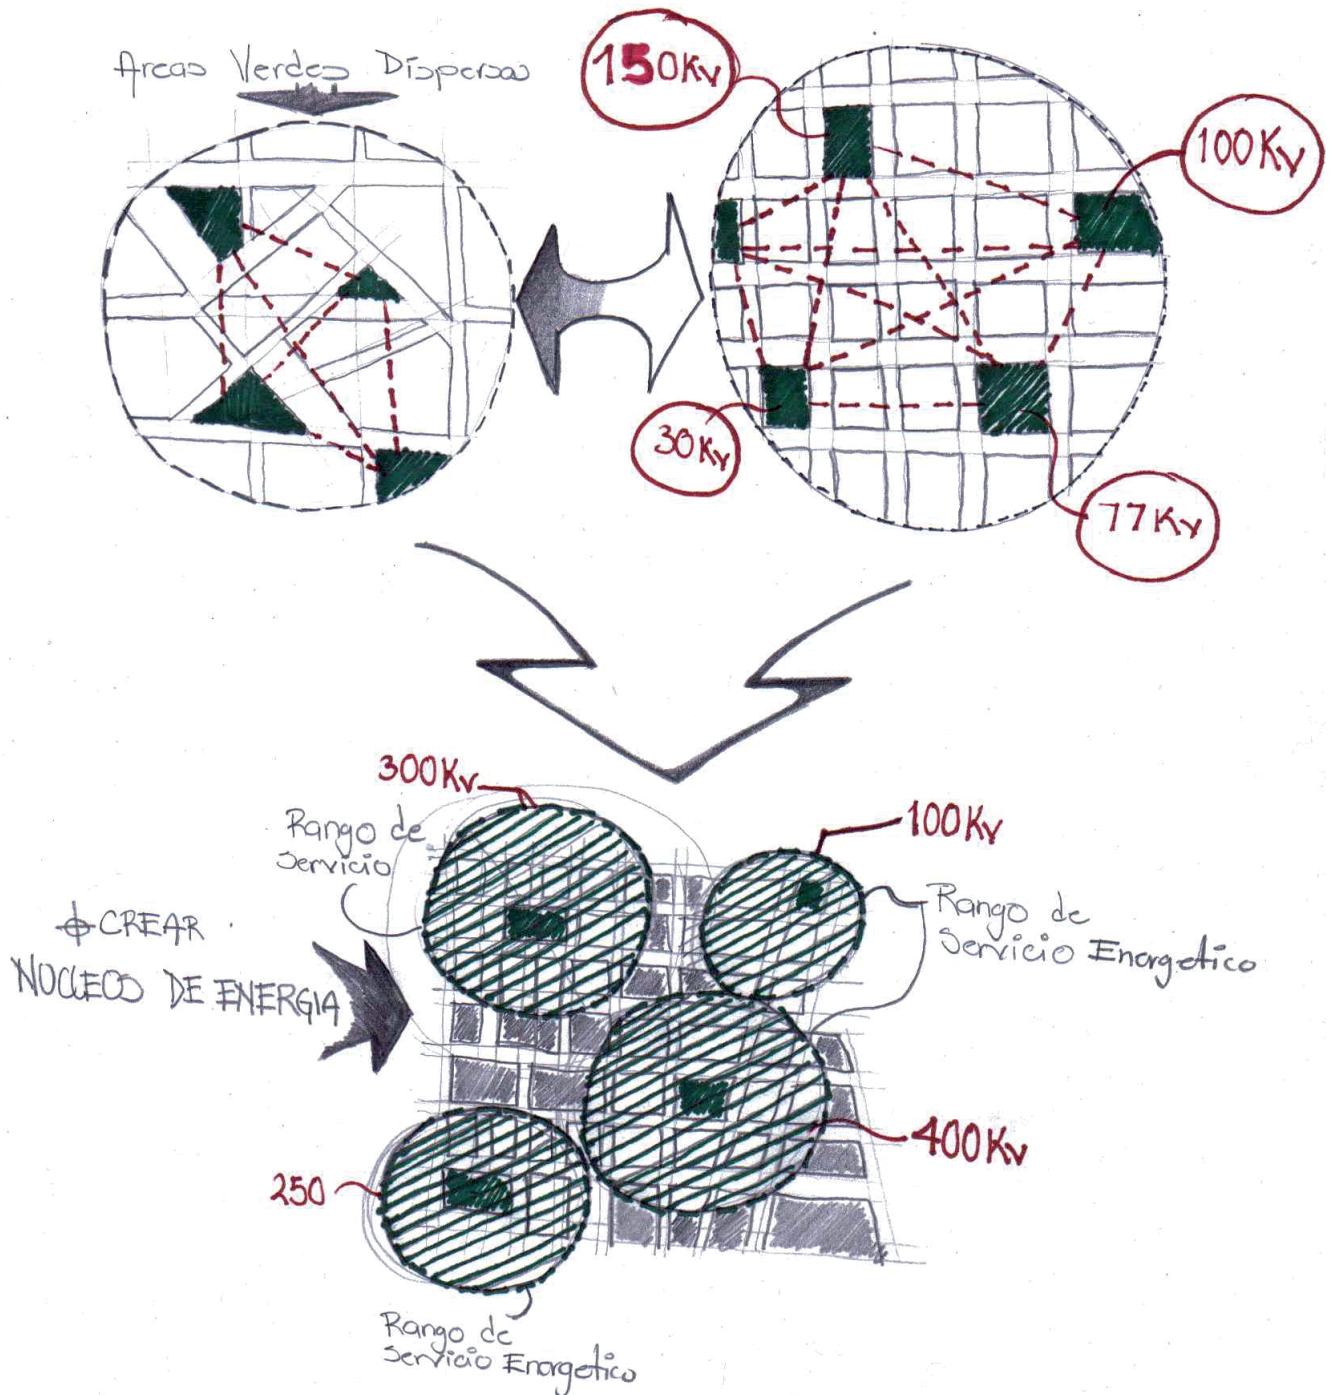 Areas Verdes Dispersas
150Kv
100Kv
30Kv
77Kv
300Kv
Rango de
servicio
100Kv
Rango de
Servicio Energetico
CREAR
NUCLEOS DE ENERGIA
400Kv
250
Rango de
Servicio Energetico